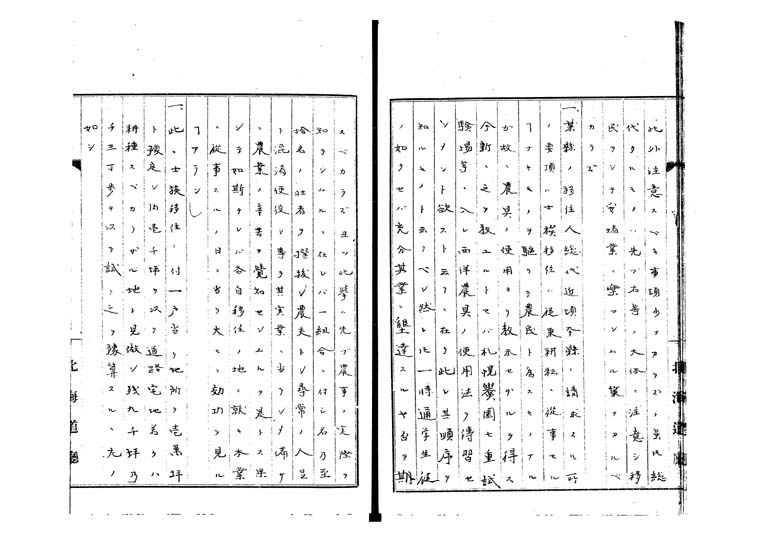 此外注意スベキ事項少ナカラズト虽モ総
代タルモノハ先ヅ右等ノ大体ニ注意シ移
民ヲシテ安堵業ニ樂マシムル策ナカルベ
カラズ
一、某縣ノ移住人総代近頃本縣ニ請求スル所
ノ要項ハ士族移住ハ従来耕耘ニ従事セル
コナキモノヲ駆リテ農民ト為スモノナル
ガ故ニ農具ノ使用ヨリ教示セザルヲ得ス
今新ニ之ヲ教ユルトセバ札幌農園セ重試
験場等ニ入レ西洋農具ノ使用法ヲ傳習セ
シメント欲スト云フニ在リ此レ其順序ヲ
知ルモノト云フベシ然レヒ一時通学生徒
ノ如クセバ充分其業ニ墾達スルヤ否ヲ期
スベカラズ且ツ此挙ハ先ヅ農事ノ実際ヲ
知ラシムルニ在レバ一組合ニ付三名乃至
拾名ノ壮者ヲ撰抜シ農夫トシ尋常ノ人足
ト混淆使役シ專ラ其実業ニ当ラシメ備サ
ニ農業ノ辛苦ヲ覺知セシムルヲ是トス果
シテ如斯ナレバ各自移住ノ地ニ就キ本業
ニ従事スルノ日ニ当リ大ニ効功ヲ見ル
コアラン
一、此ニ士族移住ニ付一戸当リ地所ヲ壱萬坪
ト豫定シ内壱千坪ヲ以テ道路宅地若クハ
耕種スベカラザル地ト見做シ残九千坪乃
チ三丁歩ヲ以テ試ニ之ヲ豫算スルニ先ノ
如シ
北海道廳
北海道廳